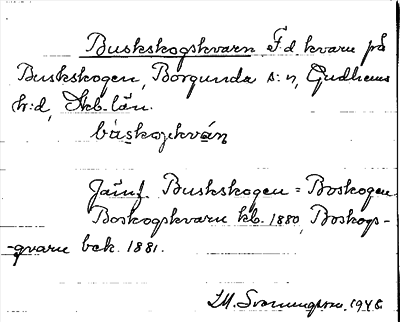 Buskskogskvarn F.d kvarn på
Buskskogen, Borgunda s:n, Gudhems
h:d, Skb. län.
bu̇skoɡkvȧṇ
Jämf. Buskskogen = Boskogen.
Boskogskvarn kb. 1880, Boskogs-
-qvarn bek. 1881.
1948